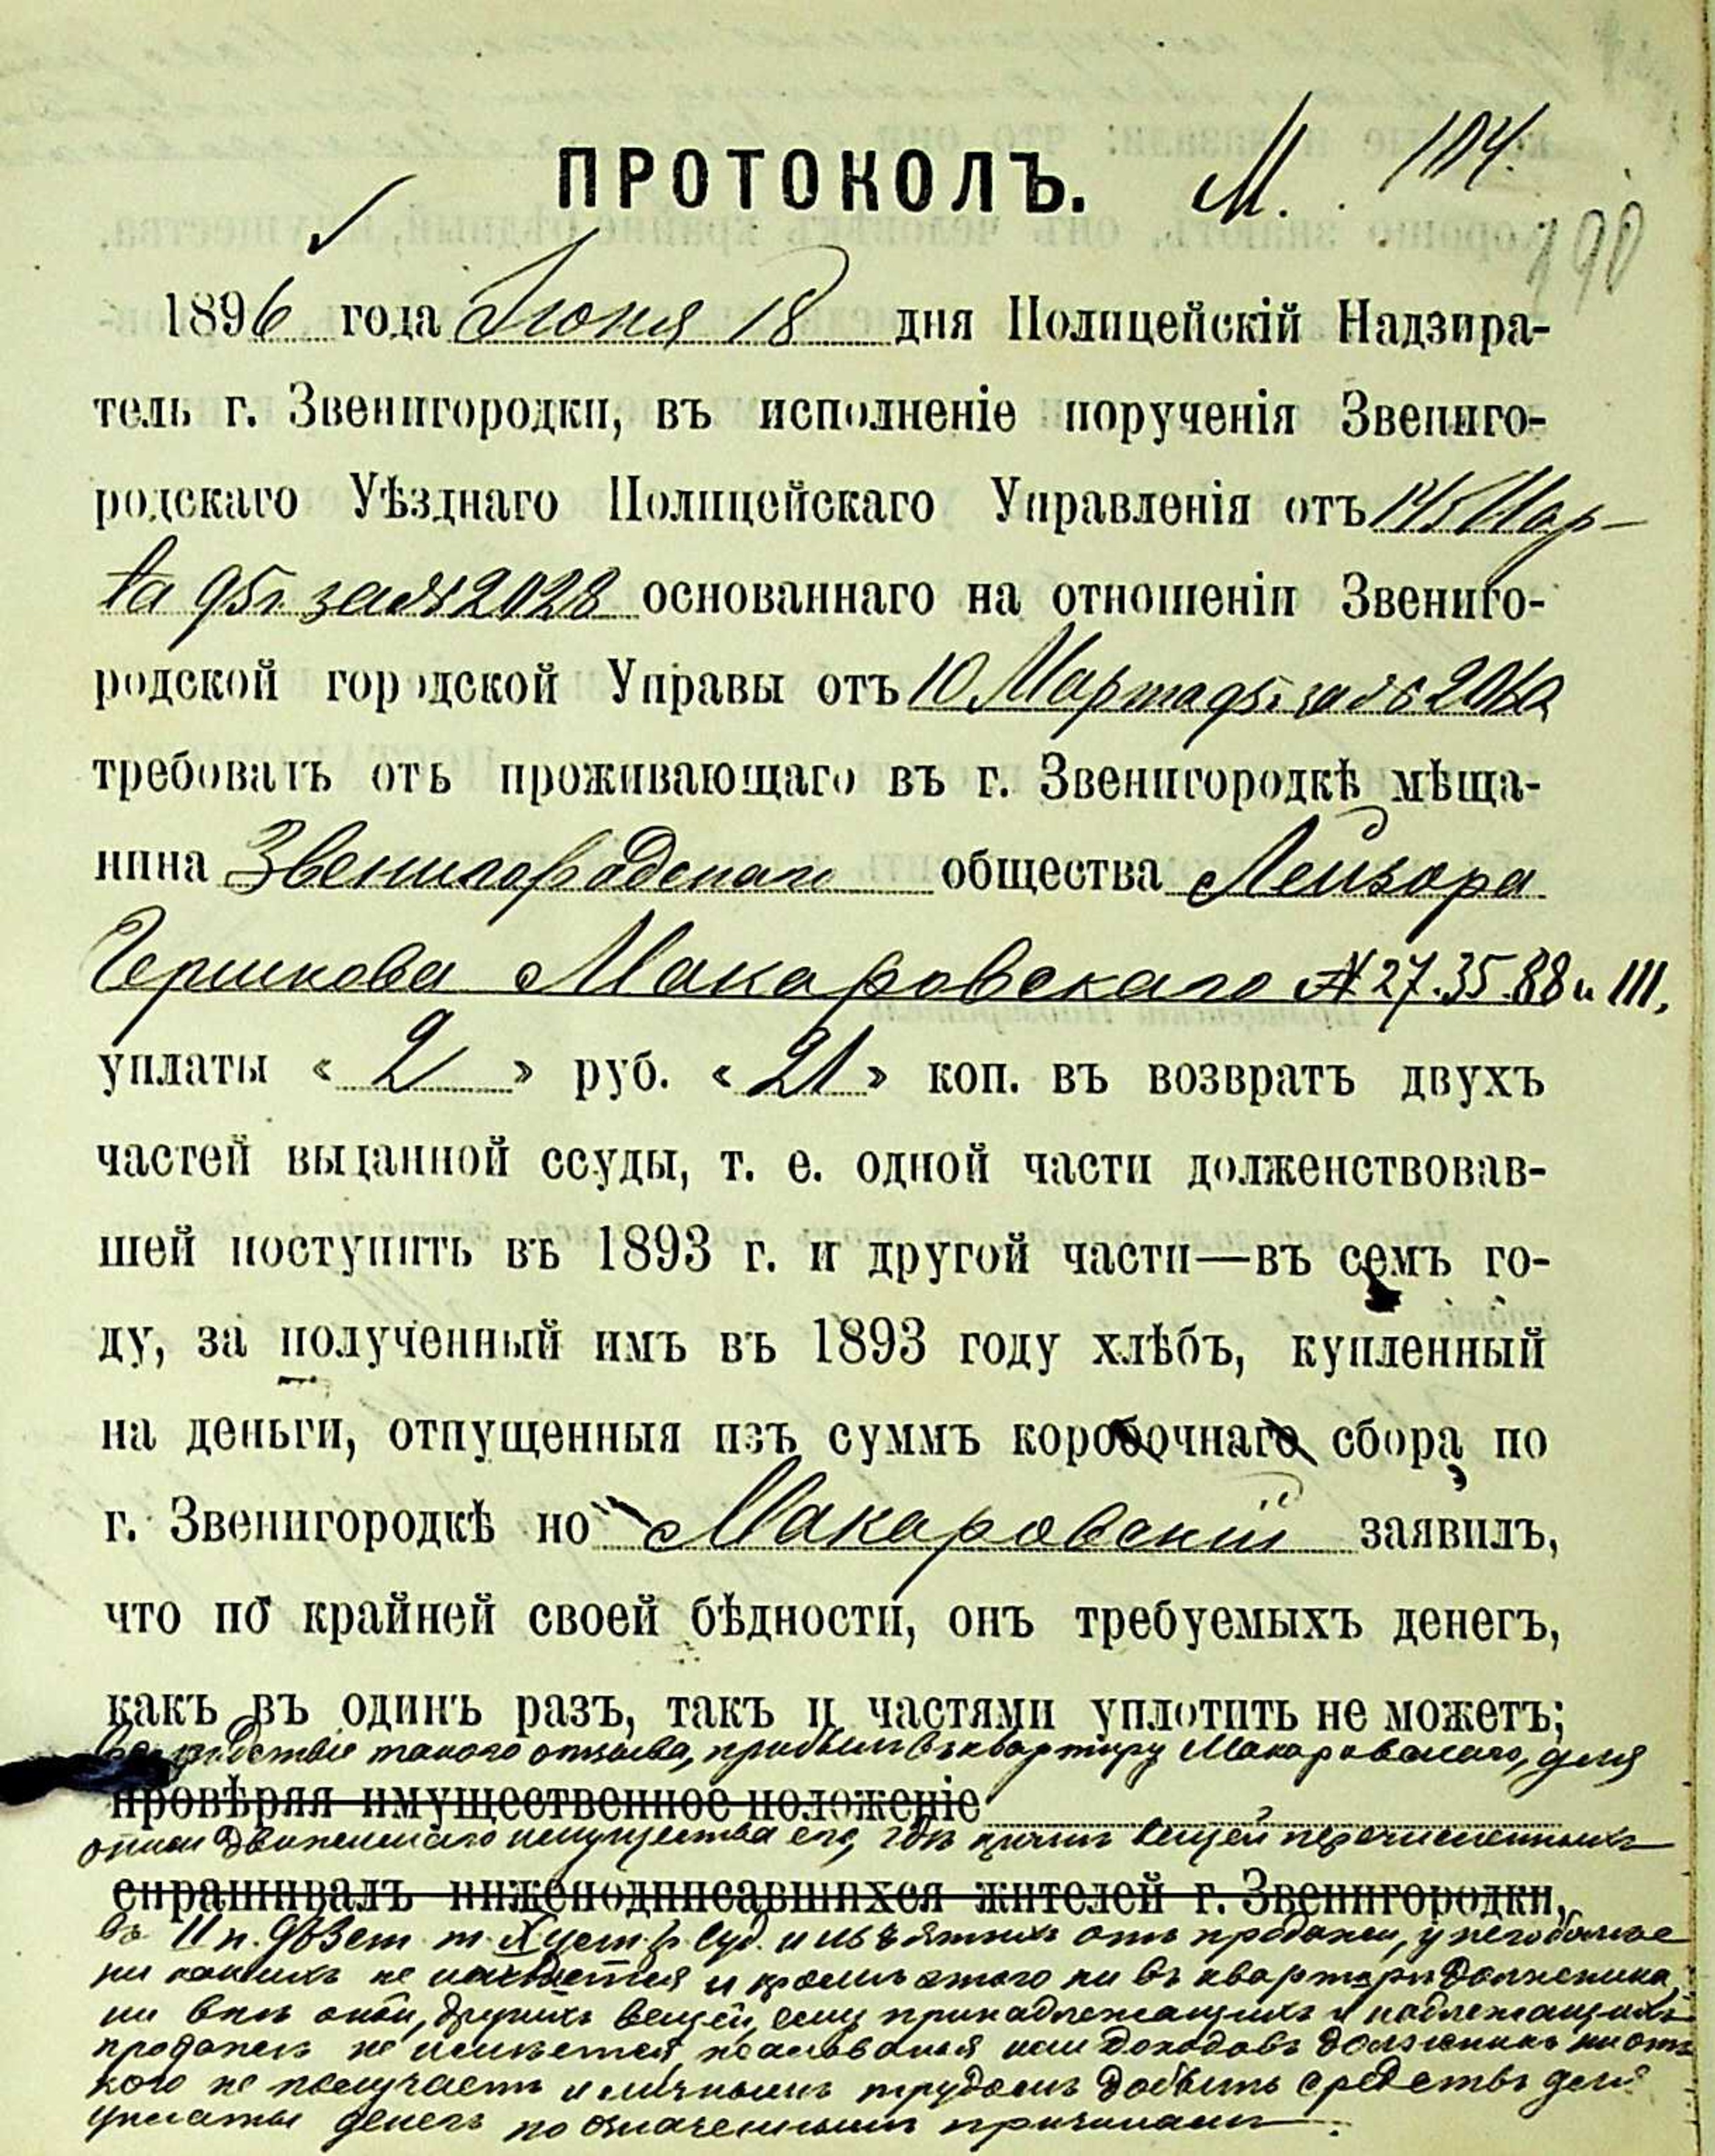 ПРОТОКОЛЪ. М. 104.
190
1896 года Іюня 18 дня Полицейскій Надзира-
тель г. Звенигородки, въ исполненіе порученія Звениго-
родскаго Уѣзднаго Полицейскаго Управленія отъ 14/5 Мар-
та 95г. за № 2028 основаннаго на отношеніи Звениго-
родской городской Управы отъ 10 Марта 95г за №
требовать отъ проживающаго въ г. Звенигородкѣ мѣща-
нина Звенигородскаго общества Лейзора
Гершкова Макаровскаго № 27.35.88 и 111,
уплаты « 2 » руб. « 21 » коп. въ возвратъ двухъ
частей выданной ссуды, т. е. одной части долженствовав-
шей поступить въ 1893 г. и другой части—въ семъ го-
ду, за полученный имъ въ 1893 году хлѣбъ, купленный
на деньги, отпущенныя изъ суммъ коробочнаго сбора по
г. Звенигородкѣ но Макаровскій заявилъ,
что по крайней своей бѣдности, онъ требуемыхъ денегъ,
какъ въ одинъ разъ, такъ и частями уплотить не можетъ;
такого отзыва, прибылъ въ квартиру Макаровскаго, для
провѣряя имущественное положеніе
описи движимаго имущества его, гдѣ кромѣ вещей перечисленныхъ
спрашивалъ нижеподписавшихся жителей г. Звенигородки,
въ II п. 973 ст. т. X уст. гр. суд. и изъятыхъ отъ продажи, у него болѣе
ни какихъ не находится и кромѣ этого ни въ квартирѣ должника
ни внѣ оной, другихъ вещей, ему принадлежащихъ и надлежащихъ
продажѣ не имѣется, жалованья или доходовъ должникъ ни отъ
кого не получаетъ и личнымъ трудомъ добыть средствъ для
уплаты денегъ по означеннымъ причинамъ